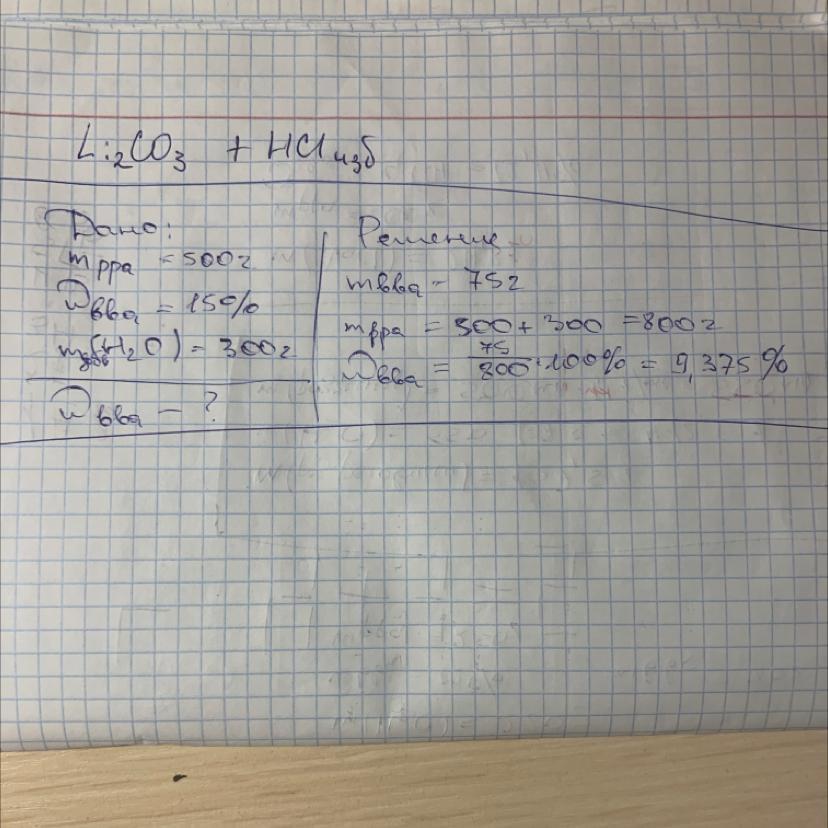 Li2CO3 + HCl изб
Дано:
mрра = 500г
Wвва = 15%
mдобв(H2O) = 300г
Wвва - ?
Решение
mвва - 75г
mрра = 500 + 300 = 800г
Wвва = 75/800 · 100% = 9,375%